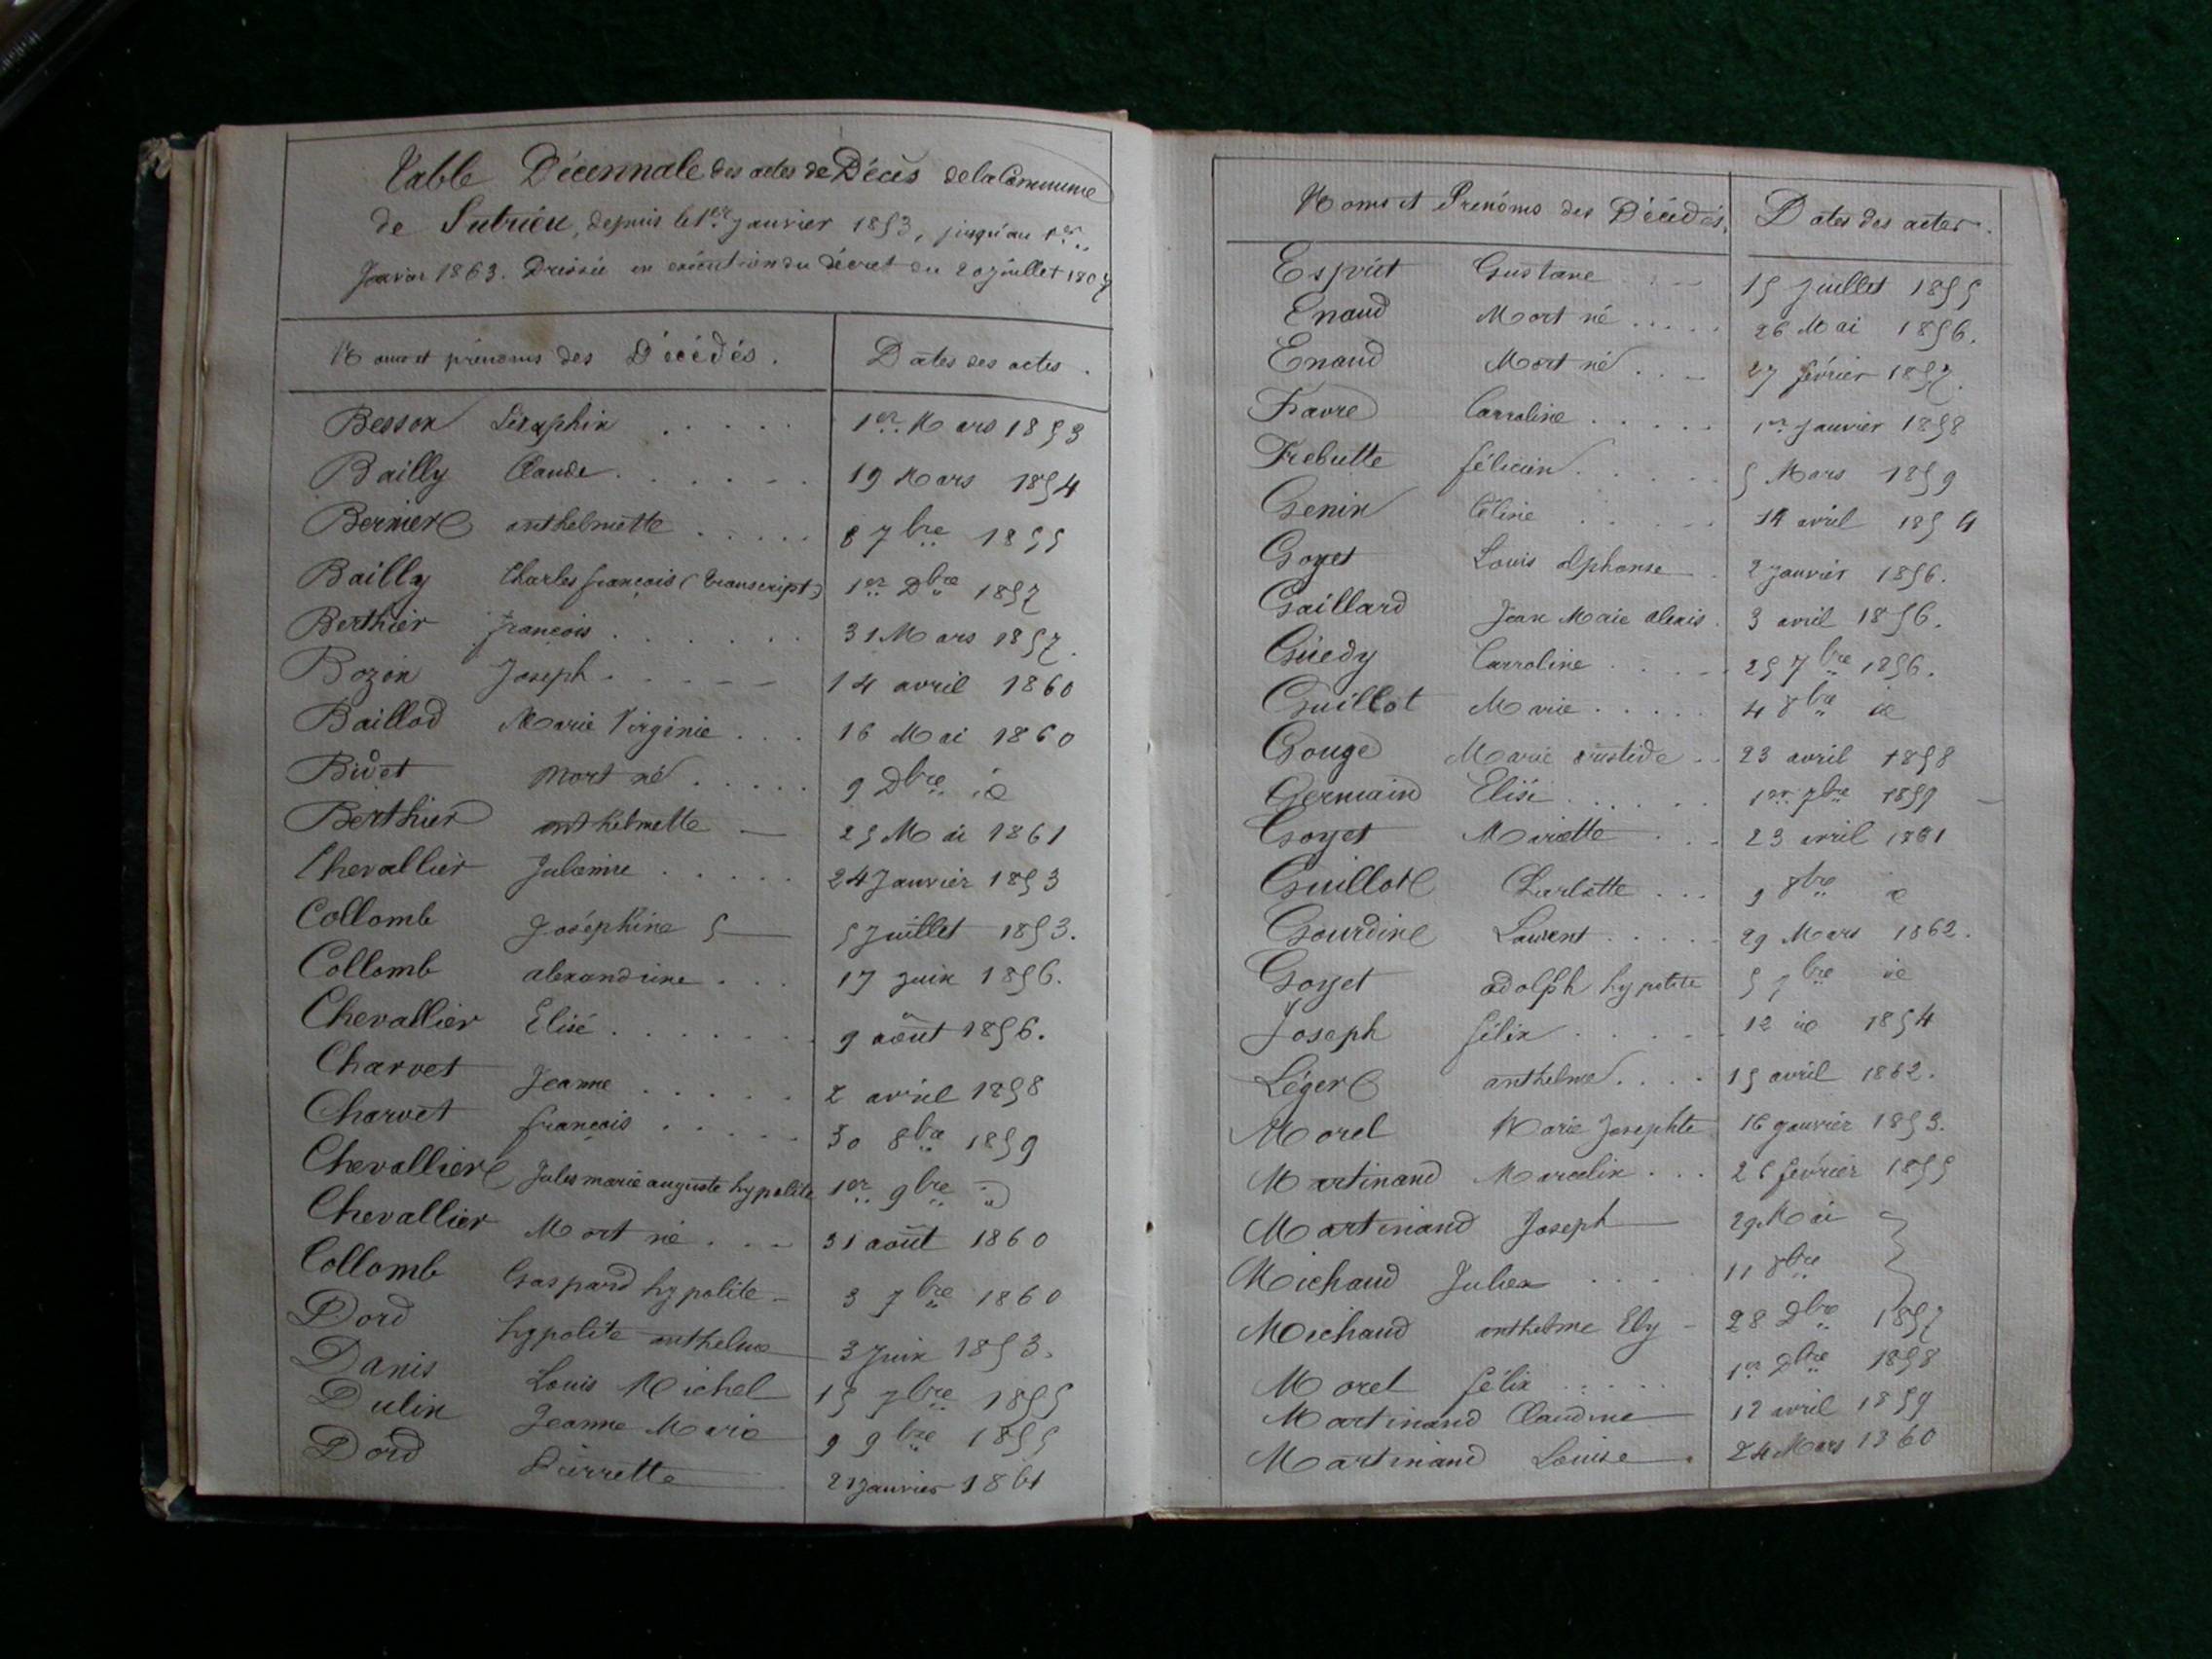 Table Décennale des actes de Décès de la Commune
de Sutrieu, depuis le 1er Janvier 1853, jusqu'au 1er
Janvier 1863. Dressée en exécution du décret du 20 juillet 1807
Noms et prénoms des Décédés. Dates des actes.
Besson Séraphin ..... 1er Mars 1853
Bailly Claude ...... 19 Mars 1854
Bernier anthelmette ..... 8 7bre 1855
Bailly Charles françois (transcript) 1er Dbre 1857
Berthier françois ...... 31 Mars 1857.
Bozon Joseph ..... 14 avril 1860
Baillod Marie Virginie ... 16 Mai 1860
Bidet Mort né ..... 9 Dbre id
Berthier anthelmette — 25 Mai 1861
Chevallier Julienne ..... 24 Janvier 1853
Collomb Joséphine — 5 Juillet 1853.
Collomb alexandrine ... 17 Juin 1856.
Chevallier Elisé ...... 9 août 1856.
Charvet Jeanne ..... 2 avril 1858
Charvet françois ..... 30 8bre 1859
Chevallier Jules marie auguste hypolite 1er 9bre id
Chevallier Mort né ... 31 août 1860
Collomb Gaspard hypolite - 3 7bre 1860
Dord hypolite anthelme 3 Juin 1853.
Danis Louis Michel 15 7bre 1855
Dulin Jeanne Marie 9 9bre 1855
Dord Pierrette 21 Janvier 1861
Noms et Prénoms des Décédés. Dates des actes.
Esprit Gustave ... 15 Juillet 1855
Enaud Mort né ..... 26 Mai 1856.
Enaud Mort né ... 27 février 1857.
Favre Carroline ..... 1er Janvier 1858
Trebutte félicien ..... 5 Mars 1859
Genin Céline .... 14 avril 1854
Goyet Louis alphonse . 2 Janvier 1856.
Gaillard Jean Marie alexis . 3 avril 1856.
Guedy Carroline .... 25 7bre 1856.
Guillot Marie ..... 4 8bre id
Gouge Marie .. 23 avril 1858
Germain Elisé ...... 1er 7bre 1859
Goyet Mariette ... 23 avril 1861
Guillot Charlotte ... 9 8bre id
Gourdin Laurent ..... 29 Mars 1862.
Goyet adolph hypolite 5 7bre id
Joseph félix .... 12 id 1854
Léger anthelme .... 15 avril 1862.
Morel Marie Josephte 16 Janvier 1853.
Martinand Marcelin ... 26 février 1855
Martinand Joseph — 29 Mai
Michaud Julien .... 11 8bre
Michaud anthelme Ely - 28 Dbre 1857
Morel félix ..... 1er 1858
Martinand Claudine — 12 avril 1859
Martinand Louise — 24 Mars 1860